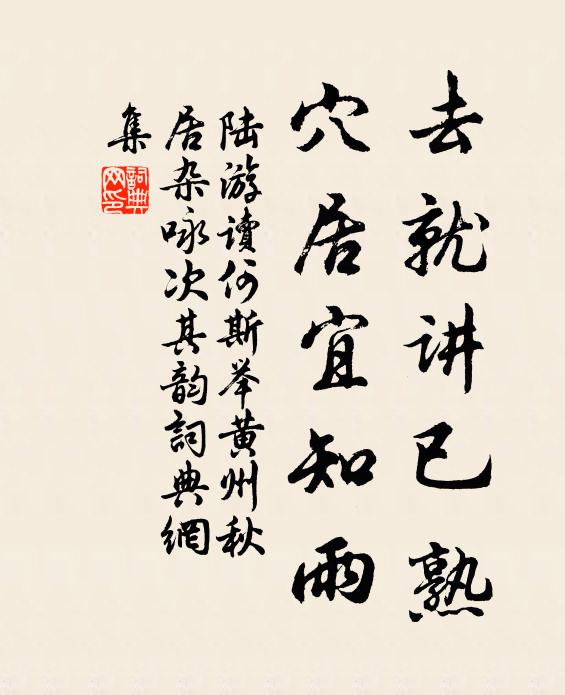 去就讲已熟
穴居宜知雨
陆游读何斯举黄州秋
居杂咏次其韵詞典網
集
詞典網印